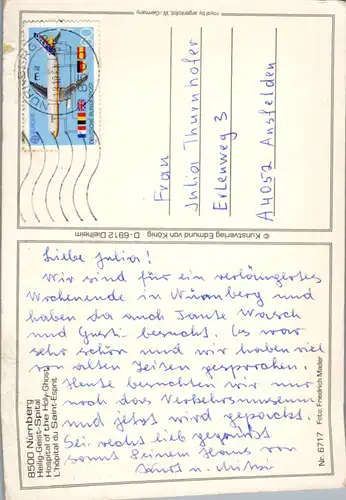 royal by argentofot, W.-Germany
NÜRNBERG
DEUTSCHE BUNDESPOST
EUROPA
Frau
Julia Thurnhofer
Erlenweg 3
A 4052 Ansfelden
© Kunstverlag Edmund von König D-6912 Dielheim
Liebe Julia!
Wir sind für ein verlängertes
Wochenende in Nürnberg und
haben da auch Tante Warsch
und Gusti besucht. Es war
sehr schön und wir haben viel
von alten Zeiten gesprochen.
Heute besuchten wir nur
noch das Verkehrsmuseum
und jetzt wird gepackt.
Sei recht lieb gegrüßt
samt Deinem Hans von
u. Mitzi
8500 Nürnberg
Heilig-Geist-Spital
Hospital of the Holy-Ghost
L'hôpital du Saint-Esprit
Nr. 6717 Foto: Friedrich Mader